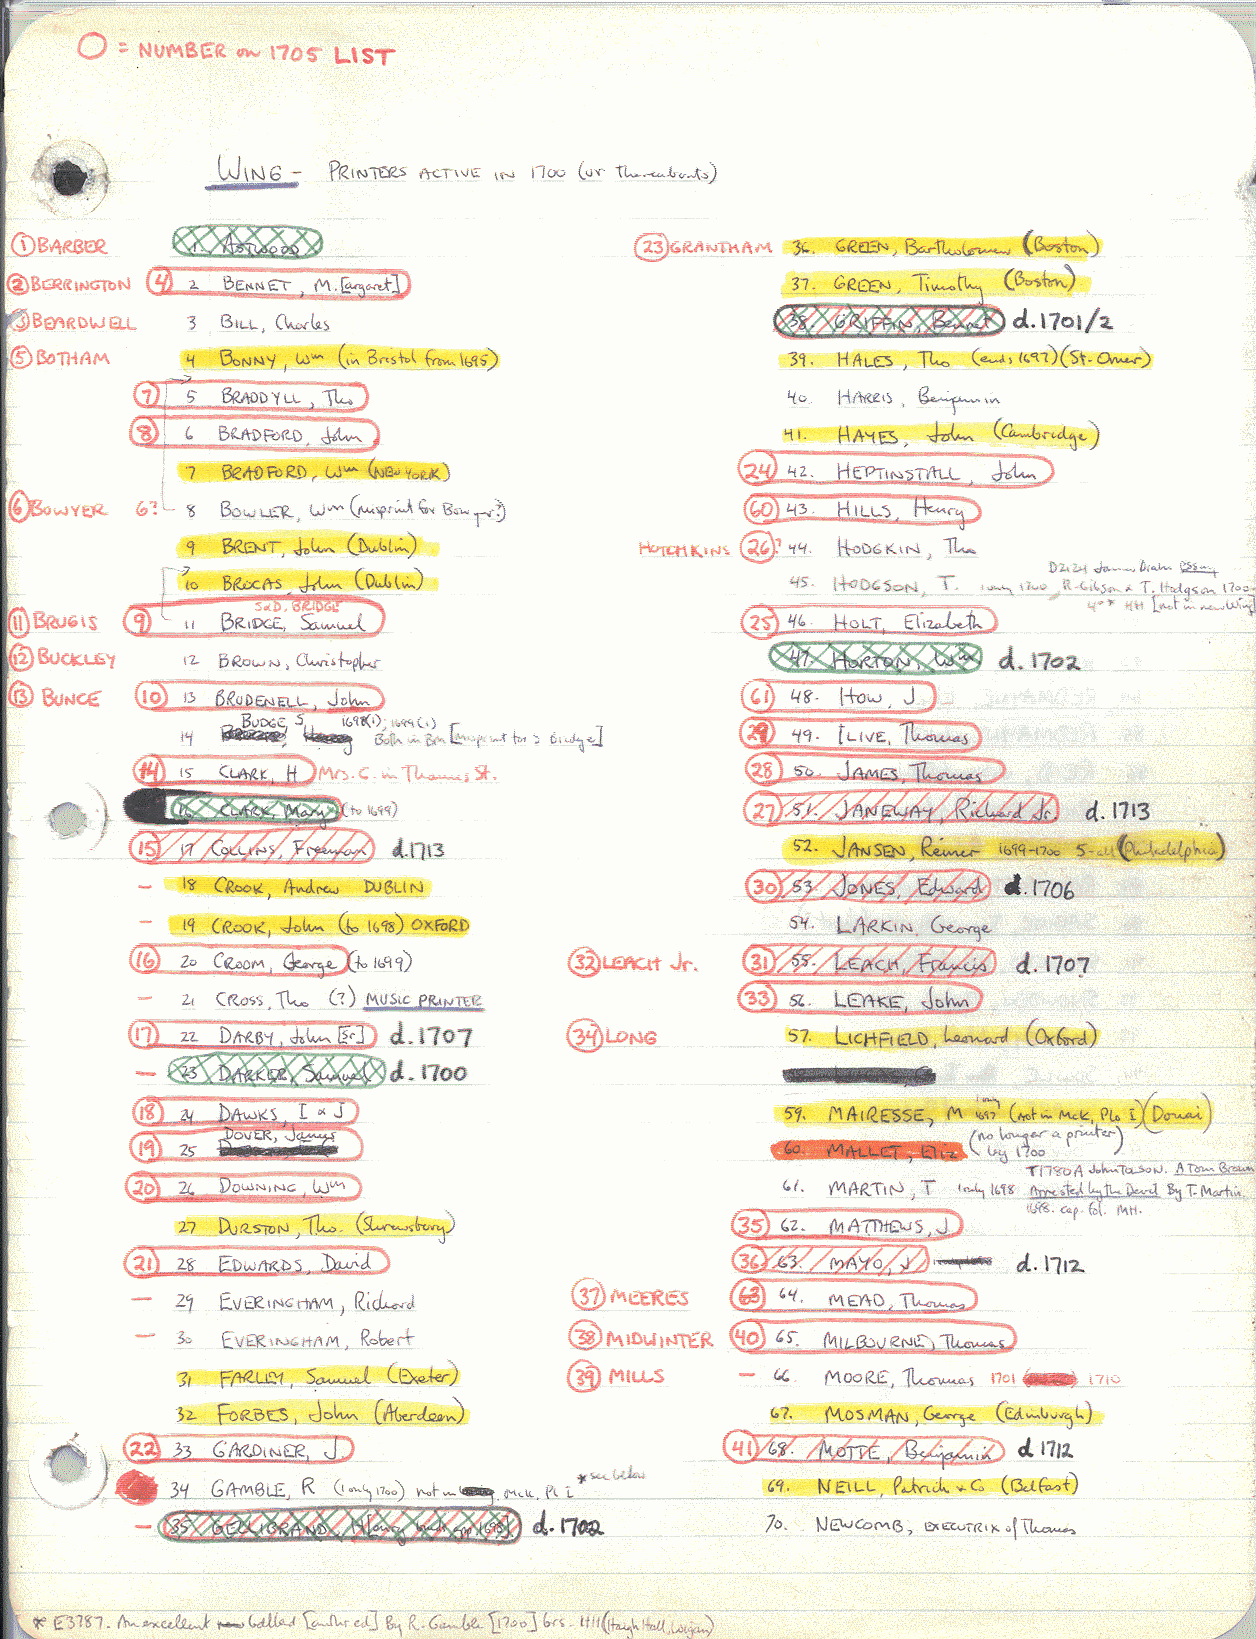 O = NUMBER on 1705 LIST
WING - PRINTERS ACTIVE IN 1700 (or thereabouts)
① BARBER 1. ASTWOOD
② BERRINGTON ④ 2 BENNET, M.[argaret]
③ BEARDWELL 3 BILL, Charles
⑤ BOTHAM 4 BONNY, Wm (in Bristol from 1695)
⑦ 5 BRADDYLL, Tho
⑧ 6 BRADFORD, John
7 BRADFORD, Wm (NEW YORK)
⑥ BOWYER 6? 8 BOWLER, Wm (misprint for Bowyer?)
9 BRENT, John (Dublin)
10 BROCAS, John (Dublin)
S&D. BRIDGE
⑪ BRUGIS ⑨ 11 BRIDGE, Samuel
⑫ BUCKLEY 12 BROWN, Christopher
⑬ BUNCE ⑩ 13 BRUDENELL, John
14 BUDGE, S 1698(1); 1699(1)
Both in Bm [misprint for S Bridge]
⑭ 15 CLARK, H Mrs. C. in Thames St.
16 CLARK, Mary (to 1699)
⑮ 17 COLLINS, Freeman d.1713
- 18 CROOK, Andrew DUBLIN
- 19 CROOK, John (to 1698) OXFORD
⑯ 20 CROOM, George (to 1699)
- 21 CROSS, Tho (?) MUSIC PRINTER
⑰ 22 DARBY, John [Sr] d.1707
- 23 DARKER, Samuel d.1700
⑱ 24 DAWKS, I & J
⑲ 25 DOVER, James
⑳ 26 DOWNING, Wm
27 DURSTON, Tho. (Shrewsbury)
㉑ 28 EDWARDS, David
- 29 EVERINGHAM, Richard
- 30 EVERINGHAM, Robert
31 FARLEY, Samuel (Exeter)
32 FORBES, John (Aberdeen)
㉒ 33 GARDINER, J
34 GAMBLE, R (1 only 1700) not in McK, Pl I * see below
- 35 GELLIBRAND, H d.1702
㉓ GRANTHAM 36. GREEN, Bartholomew (Boston)
37. GREEN, Timothy (Boston)
38. GRIFFIN, Bennet d.1701/2
39. HALES, Tho (ends 1697) (St-Omer)
40. HARRIS, Benjamin
41. HAYES, John (Cambridge)
㉔ 42. HEPTINSTALL, John
(60) 43. HILLS, Henry
HOTCHKINS ㉖? 44. HODGKIN, Tho
45. HODGSON, T. 1 only 1700, R. Gibson & T. Hodgson 1700
4º * HH [not in new Wing]
㉕ 46. HOLT, Elizabeth
47. HORTON, Wm d.1702
(61) 48. HOW, J
㉙ 49. ILIVE, Thomas
㉘ 50. JAMES, Thomas
㉗ 51. JANEWAY, Richard Jr. d.1713
52. JANSEN, Reiner 1699-1700 5-all (Philadelphia)
㉚ 53. JONES, Edward d.1706
54. LARKIN, George
㉜ LEACH Jr. ㉛ 55. LEACH, Francis d.1707
㉝ 56. LEAKE, John
㉞ LONG 57. LICHFIELD, Leonard (Oxford)
59. MAIRESSE, M 1 only 1697 (not in McK, Plo I) (Douai)
60. MALLET, Eliz (no longer a printer by 1700)
T1780A John Tason. A Tom Brown
61. MARTIN, T 1 only 1698 Arrested by the Devil By T. Martin.
1698. cap. fol. MH.
㉟ 62. MATTHEWS, J
㊱ 63. MAYO, J d.1712
㊲ MEERES (63) 64. MEAD, Thomas
㊳ MIDWINTER ㊵ 65. MILBOURNE, Thomas
㊴ MILLS - 66. MOORE, Thomas 1701 1710
67. MOSMAN, George (Edinburgh)
㊶ 68. MOTTE, Benjamin d 1712
69. NEILL, Patrick & Co (Belfast)
70. NEWCOMB, EXECUTRIX of Thomas
* E3787. An excellent ballad By R. Gamble [1700] brs. HH (Haigh Hall, Wigan)